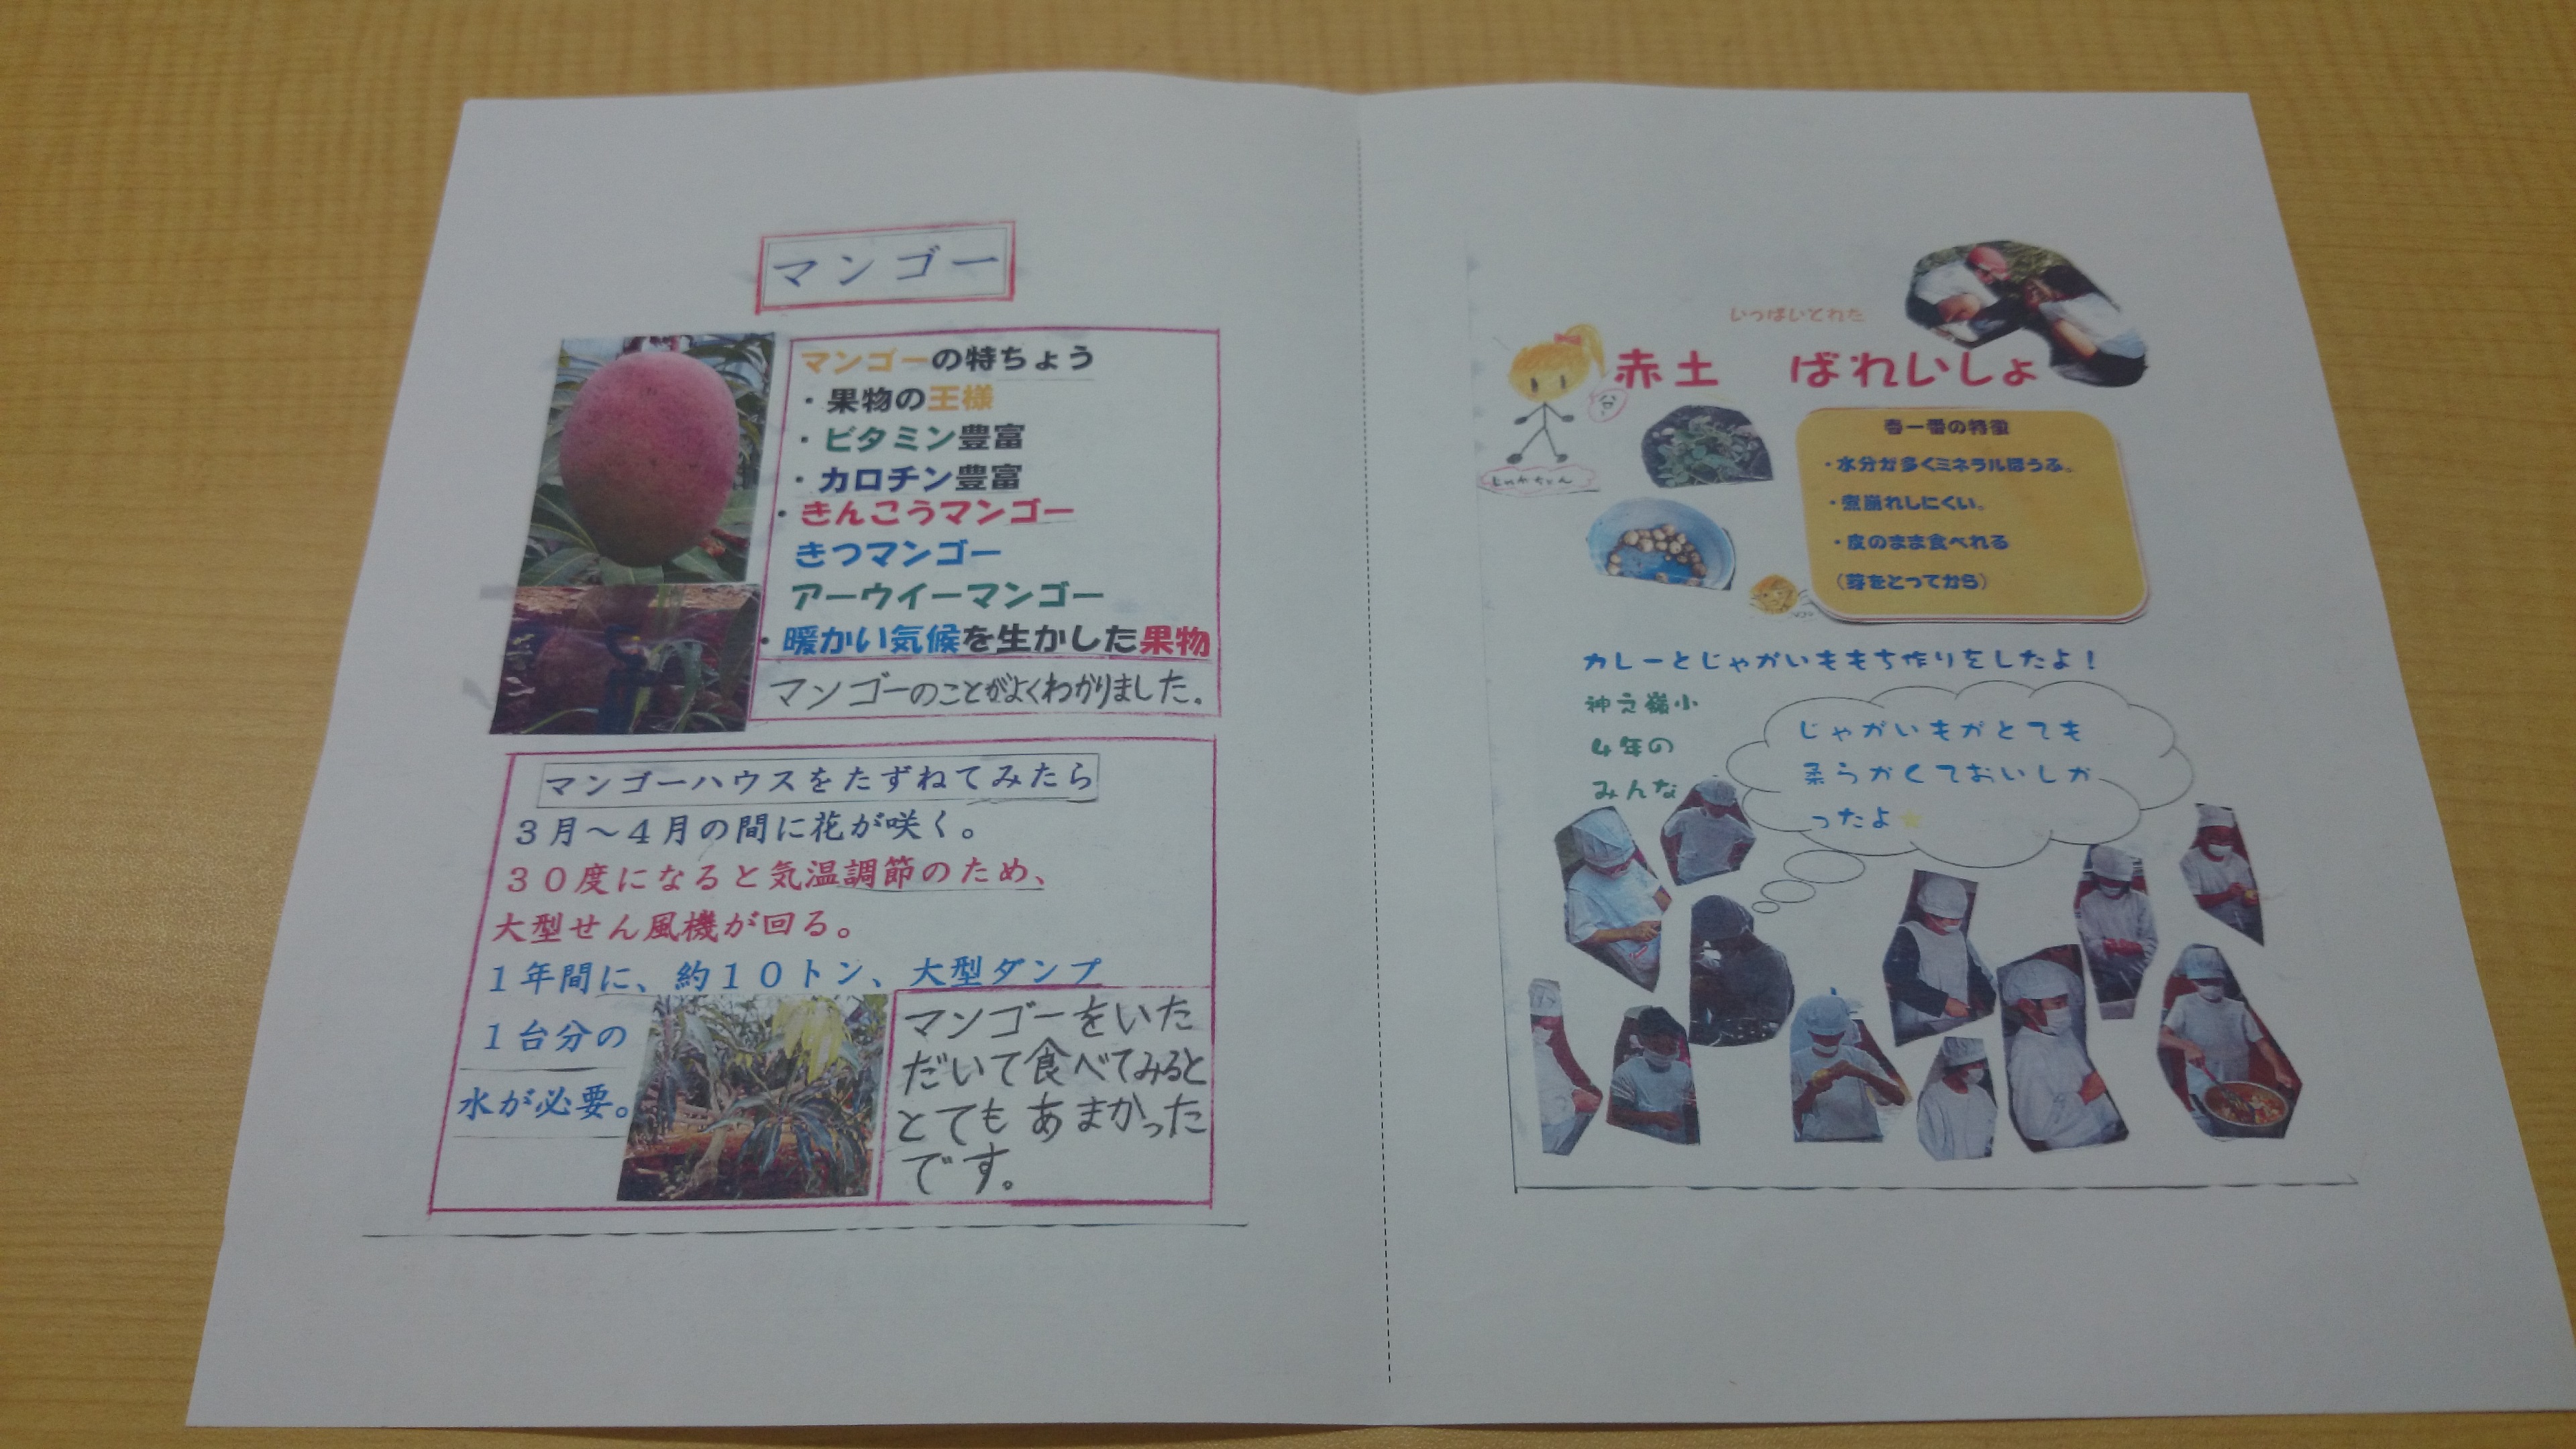 マンゴー
マンゴーの特ちょう
・果物の王様
・ビタミン豊富
・カロチン豊富
・きんこうマンゴー
きつマンゴー
アーウイーマンゴー
・暖かい気候を生かした果物
マンゴーのことがよくわかりました。
マンゴーハウスをたずねてみたら
3月～4月の間に花が咲く。
30度になると気温調節のため、
大型せん風機が回る。
1年間に、約10トン、大型ダンプ
1台分の
水が必要。
マンゴーをいた
だいて食べてみると
とてもあまかった
です。
いっぱいとれた
赤土 ばれいしょ
春一番の特徴
・水分が多くミネラルほうふ。
・煮崩れしにくい。
・皮のまま食べれる
（芽をとってから）
カレーとじゃがいももち作りをしたよ！
神之嶺小
4年の
みんな
じゃがいもがとても
柔らかくておいしか
ったよ